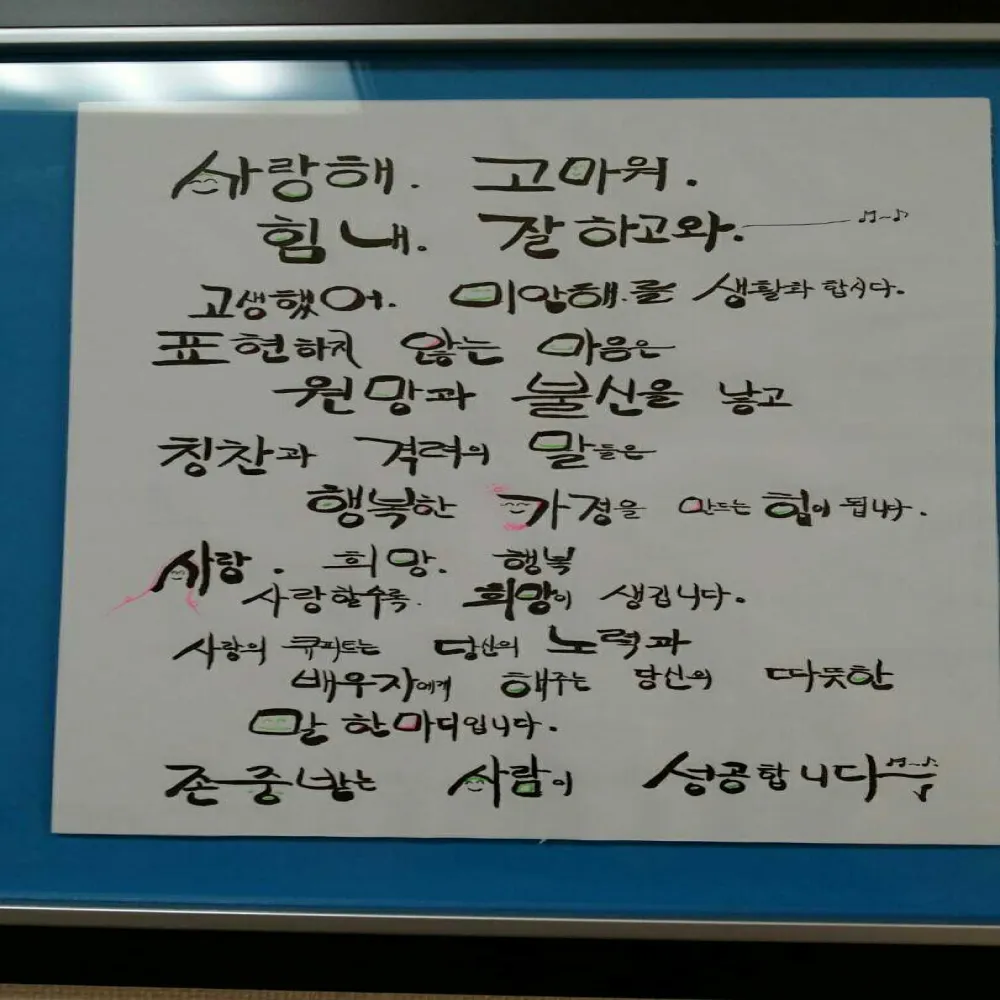 사랑해. 고마워.
힘내. 잘하고와.
고생했어. 미안해.를 생활화 합시다.
표현하지 않는 마음은
원망과 불신을 낳고
칭찬과 격려의 말들은
행복한 가정을 만드는 힘이 됩니다.
사랑. 희망. 행복
사랑할수록. 희망이 생깁니다.
사랑의 큐피트는 당신의 노력과
배우자에게 해주는 당신의 따뜻한
말 한마디입니다.
존중받는 사람이 성공합니다